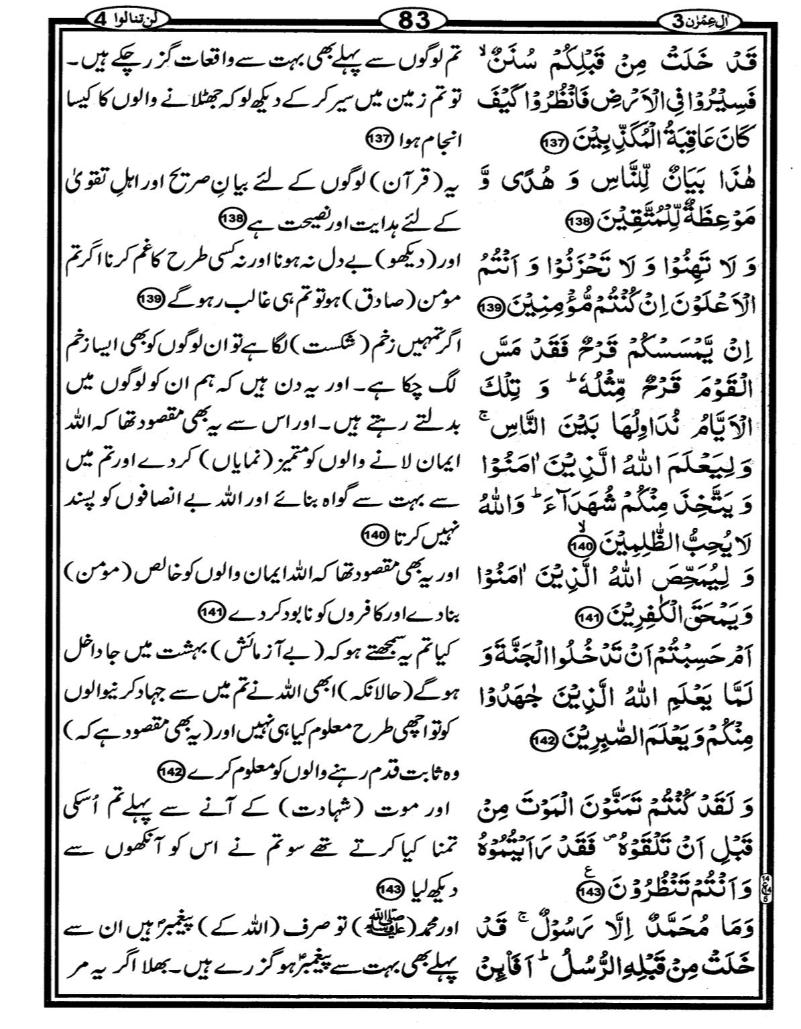 اٰلِ عِمْرٰن 3
83
لَنْ تَنَالُوا 4
قَدْ خَلَتْ مِنْ قَبْلِكُمْ سُنَنٌ ۙ
فَسِيْرُوْا فِى الْاَرْضِ فَانْظُرُوْا كَيْفَ
كَانَ عَاقِبَةُ الْمُكَذِّبِيْنَ 137
هٰذَا بَيَانٌ لِّلنَّاسِ وَ هُدًى وَّ
مَوْعِظَةٌ لِّلْمُتَّقِيْنَ 138
وَ لَا تَهِنُوْا وَ لَا تَحْزَنُوْا وَ اَنْتُمُ
الْاَعْلَوْنَ اِنْ كُنْتُمْ مُّؤْمِنِيْنَ 139
اِنْ يَّمْسَسْكُمْ قَرْحٌ فَقَدْ مَسَّ
الْقَوْمَ قَرْحٌ مِّثْلُهٗ ؕ وَ تِلْكَ
الْاَيَّامُ نُدَاوِلُهَا بَيْنَ النَّاسِ ۚ
وَ لِيَعْلَمَ اللّٰهُ الَّذِيْنَ اٰمَنُوْا
وَ يَتَّخِذَ مِنْكُمْ شُهَدَآءَ ؕ وَاللّٰهُ
لَا يُحِبُّ الظّٰلِمِيْنَ ۙ 140
وَ لِيُمَحِّصَ اللّٰهُ الَّذِيْنَ اٰمَنُوْا
وَيَمْحَقَ الْكٰفِرِيْنَ 141
اَمْ حَسِبْتُمْ اَنْ تَدْخُلُوا الْجَنَّةَ وَ
لَمَّا يَعْلَمِ اللّٰهُ الَّذِيْنَ جٰهَدُوْا
مِنْكُمْ وَ يَعْلَمَ الصّٰبِرِيْنَ 142
وَ لَقَدْ كُنْتُمْ تَمَنَّوْنَ الْمَوْتَ مِنْ
قَبْلِ اَنْ تَلْقَوْهُ ۪ فَقَدْ رَاَيْتُمُوْهُ
وَ اَنْتُمْ تَنْظُرُوْنَ 143 ع
وَمَا مُحَمَّدٌ اِلَّا رَسُوْلٌ ۚ قَدْ
خَلَتْ مِنْ قَبْلِهِ الرُّسُلُ ؕ اَفَا۟ىِٕنْ
تم لوگوں سے پہلے بھی بہت سے واقعات گزر چکے ہیں۔
تو تم زمین میں سیر کر کے دیکھ لو کہ جھٹلانے والوں کا کیسا
انجام ہوا 137
یہ (قرآن) لوگوں کے لئے بیانِ صریح اور اہلِ تقویٰ
کے لئے ہدایت اور نصیحت ہے 138
اور (دیکھو) بے دل نہ ہونا اور نہ کسی طرح کا غم کرنا اگر تم
مؤمن (صادق) ہو تو تم ہی غالب رہو گے 139
اگر تمہیں زخم (شکست) لگا ہے تو ان لوگوں کو بھی ایسا زخم
لگ چکا ہے۔ اور یہ دن ہیں کہ ہم ان کو لوگوں میں
بدلتے رہتے ہیں۔ اور اس سے یہ بھی مقصود تھا کہ اللہ
ایمان لانے والوں کو متمیز (نمایاں) کر دے اور تم میں
سے بہت سے گواہ بنائے اور اللہ بے انصافوں کو پسند
نہیں کرتا 140
اور یہ بھی مقصود تھا کہ اللہ ایمان والوں کو خالص (مؤمن)
بنا دے اور کافروں کو نابود کر دے 141
کیا تم یہ سمجھتے ہو کہ (بے آزمائش) بہشت میں جا داخل
ہو گے (حالانکہ) ابھی اللہ نے تم میں سے جہاد کرنیوالوں
کو تو اچھی طرح معلوم کیا ہی نہیں اور (یہ بھی مقصود ہے کہ)
وہ ثابت قدم رہنے والوں کو معلوم کرے 142
اور موت (شہادت) کے آنے سے پہلے تم اُسکی
تمنا کیا کرتے تھے سو تم نے اس کو آنکھوں سے
دیکھ لیا 143
اور محمد (ﷺ) تو صرف (اللہ کے) پیغمبرؐ ہیں ان سے
پہلے بھی بہت سے پیغمبرؑ ہو گزرے ہیں۔ بھلا اگر یہ مر